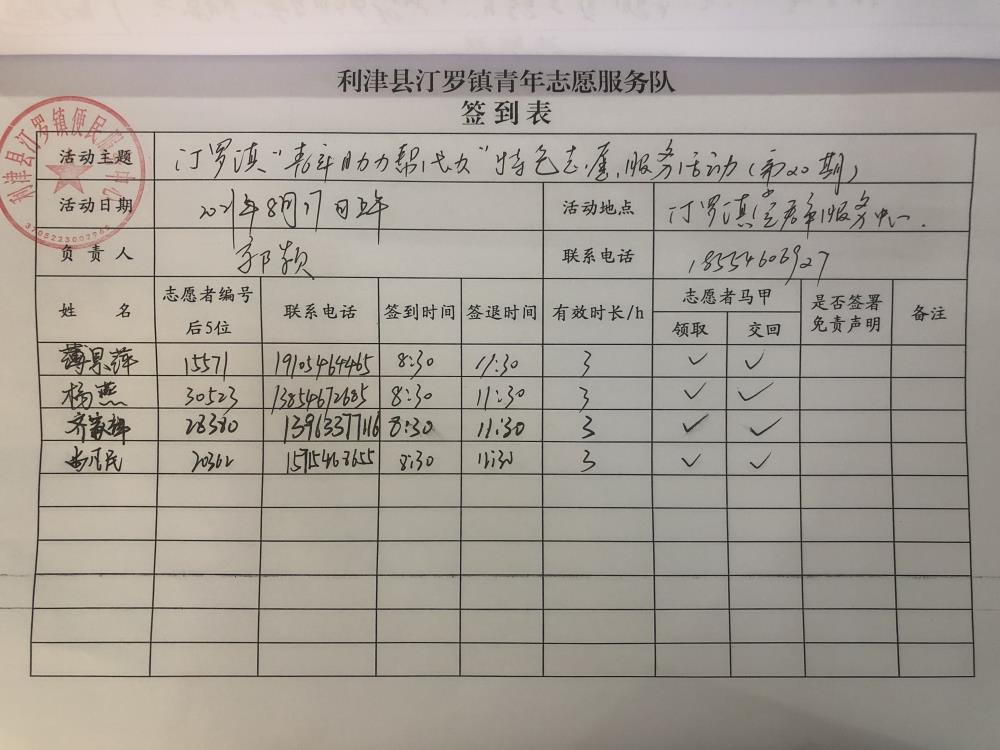 利津县汀罗镇青年志愿服务队
签到表
利津县汀罗镇便民服务中心
3705223002965
活动主题 汀罗镇“青年助力帮代办”特色志愿服务活动（第20期）
活动日期 2021年8月17日上午 活动地点 汀罗镇党群服务中心.
负责人 郭颖 联系电话 18554606927
姓名 志愿者编号后5位 联系电话 签到时间 签退时间 有效时长/h 志愿者马甲 是否签署免责声明 备注
领取 交回
薄景萍 15571 19105464465 8:30 11:30 3 ✓ ✓
杨燕 30523 13854672685 8:30 11:30 3 ✓ ✓
28380 13963377116 8:30 11:30 3 ✓ ✓
20362 15715468655 8:30 11:30 3 ✓ ✓